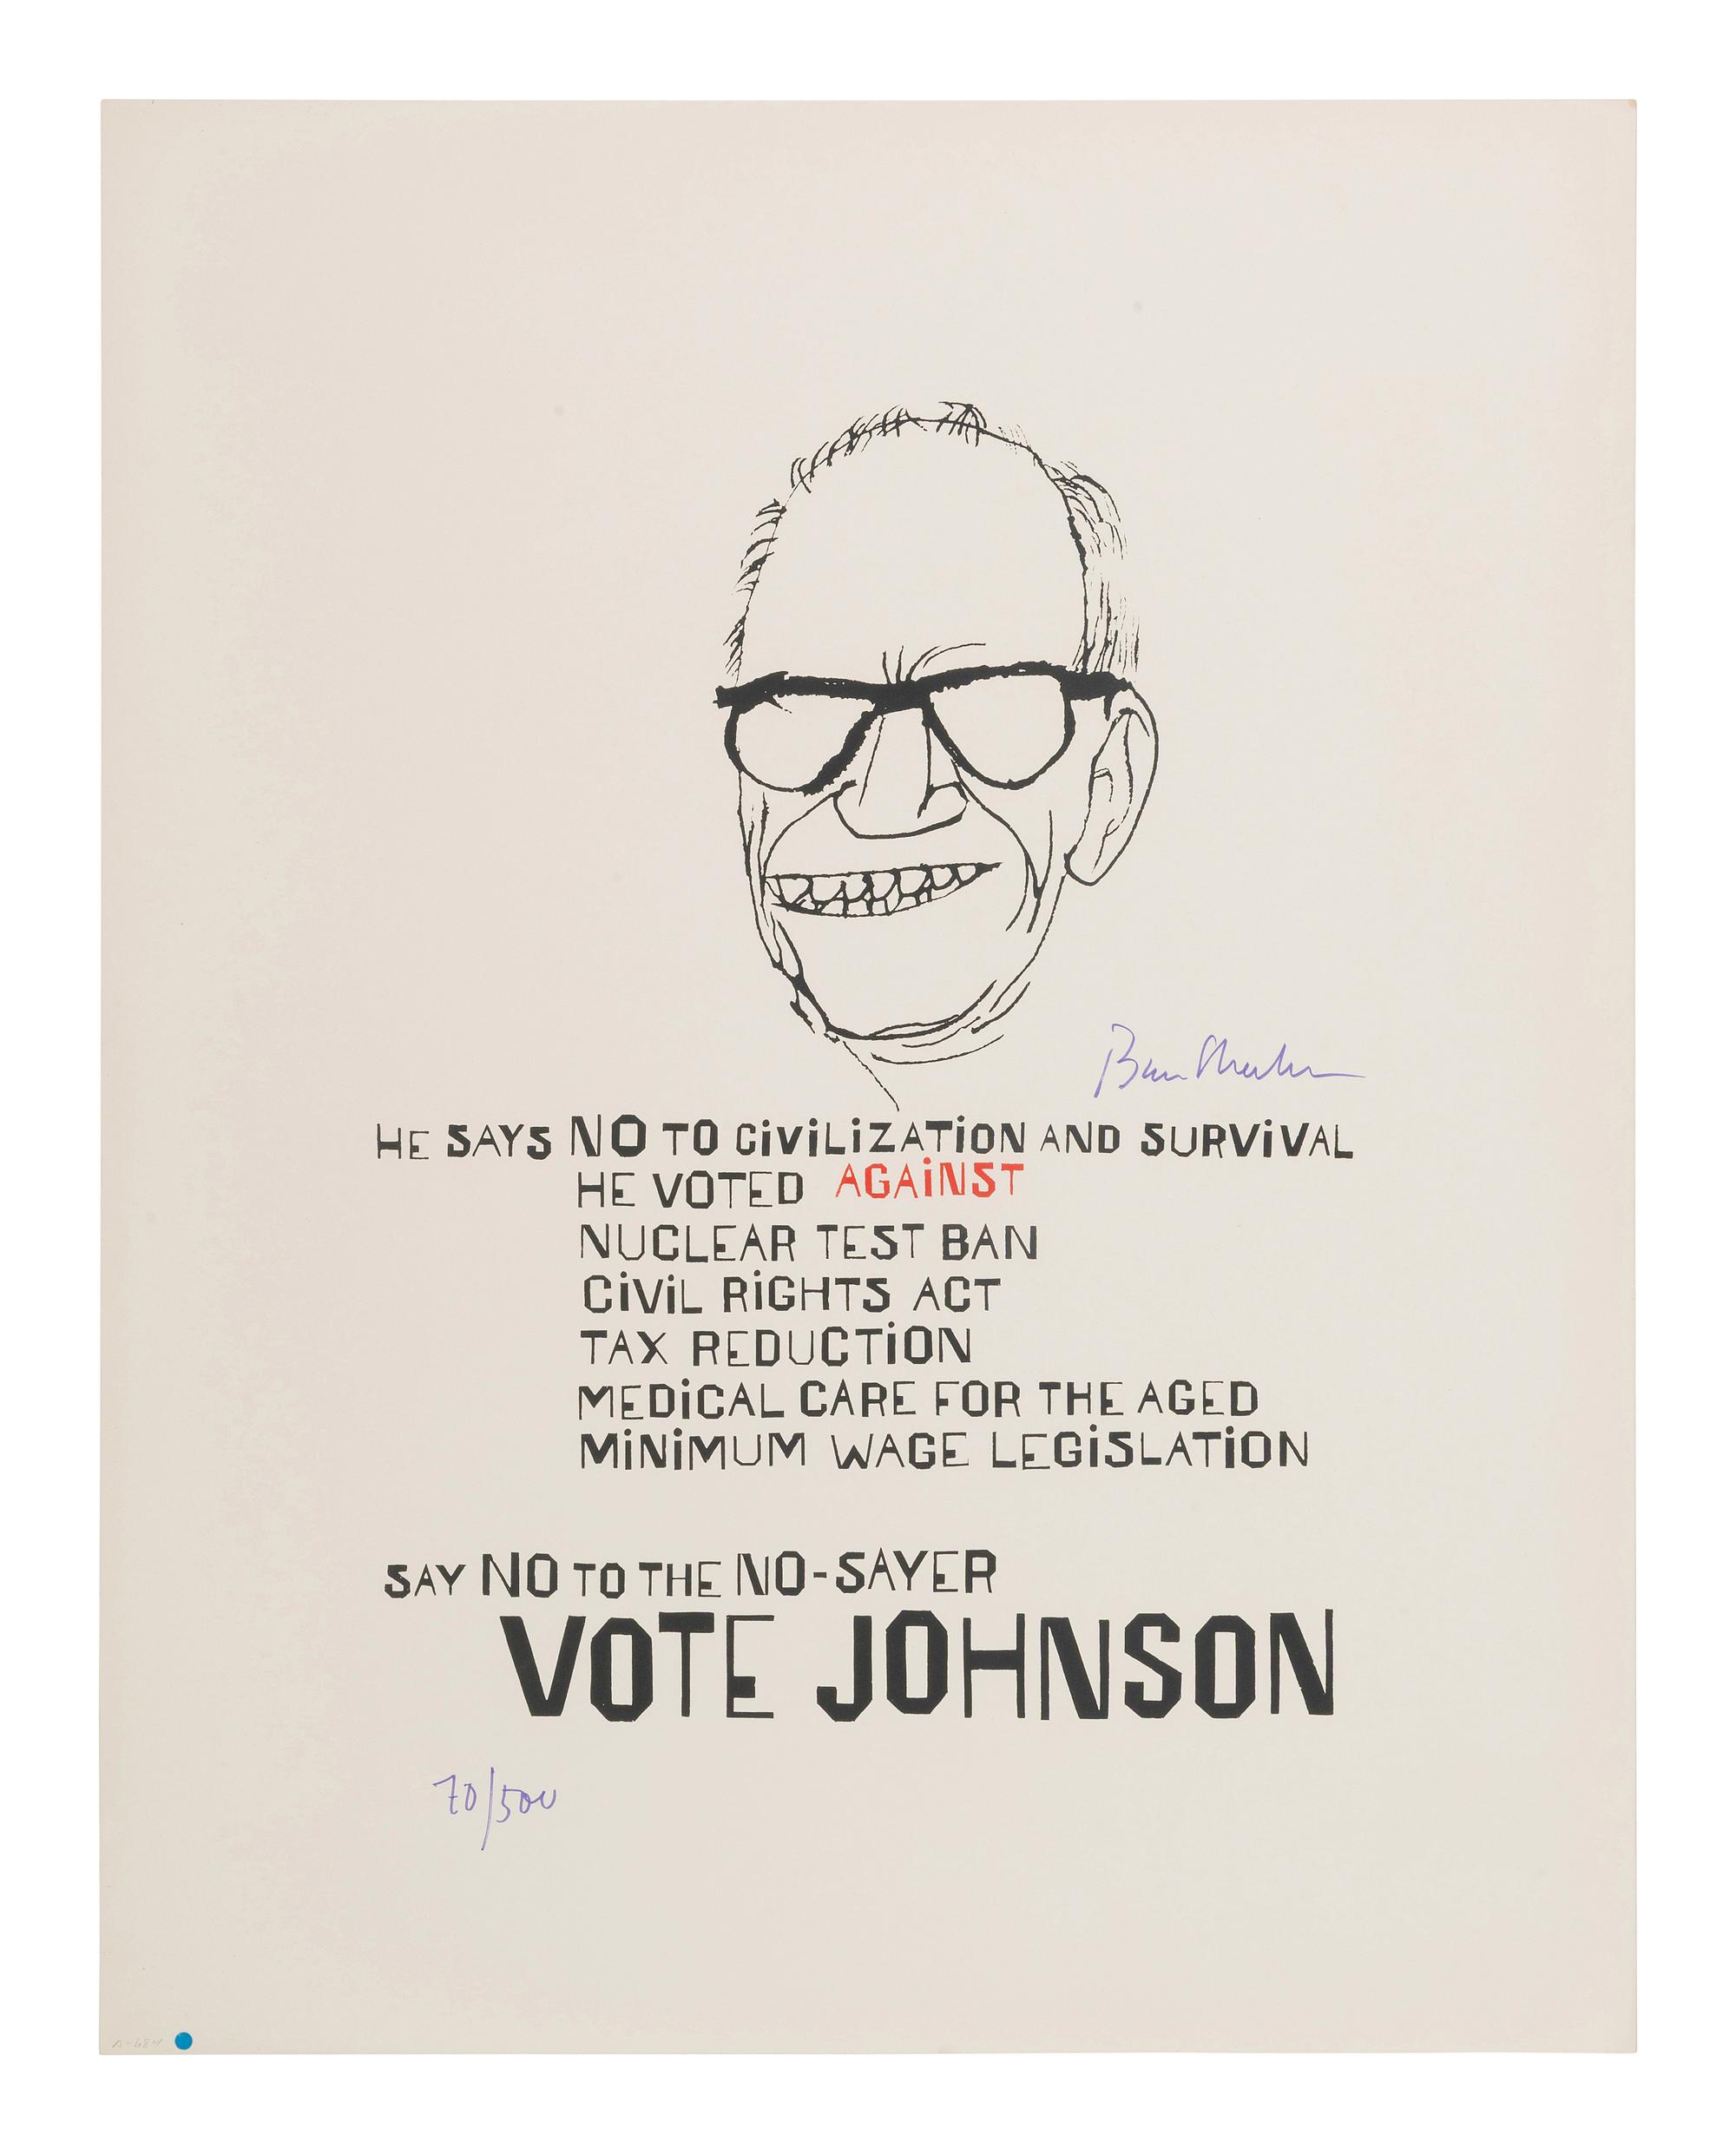 Ben Shahn
HE SAYS NO TO CiViLiZATiON AND SURViVAL
HE VOTED AGAiNST
NUCLEAR TEST BAN
CiViL RiGHTS ACT
TAX REDUCTiON
MEDiCAL CARE FOR THE AGED
MiNiMUM WAGE LEGiSLATiON
SAY NO TO THE NO-SAYER
VOTE JOHNSON
70/500